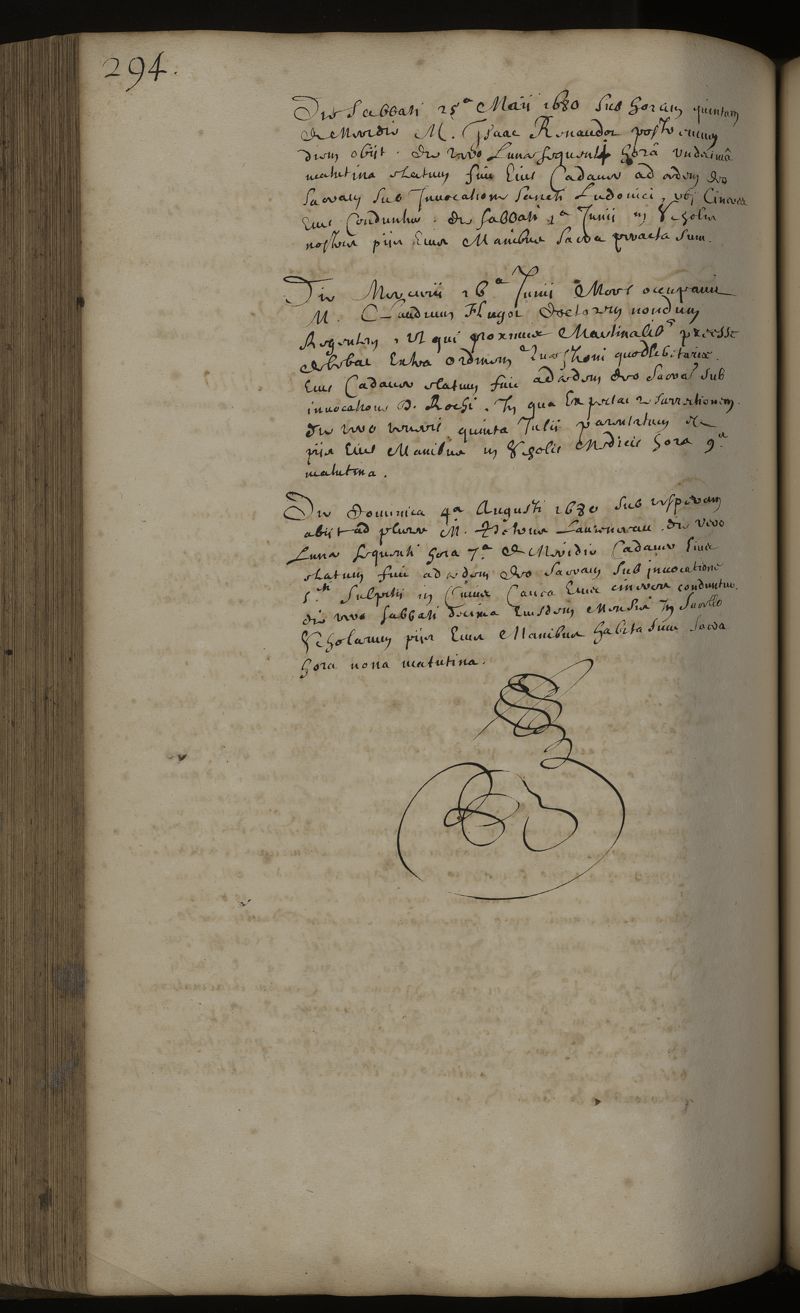 294.
Die Sabbati 25ª Maii 1680 sub horam quintam
de Meridie M. Isaac Renaudot
diem obiit. die vero Lunæ sequenti hora undecima
matutina elatum fuit Eius Cadaver ad ædem deo
sacram sub Invocatione sancti Ludovici, ubi Cineres
Eius Conduntur. die sabbati 1ª Junii in Scholis
nostris piis Eius Manibus sacra peracta sunt.
Die Mercurii 26ª Junii Mors occupavit
M. Claudium Doctorem nondum
Regentem, ut qui proxime præesse
debebat Extra ordinem Quæstioni quodlibetariæ.
Eius Cadaver elatum fuit ad ædem deo sacrā sub
invocatione D. Rochi. In qua Expectat resurrectionem.
die vero veneris quinta Julii parentatum est
piis Eius Manibus in Scholis Medicis hora 9ª
matutina.
Die Dominica 4ª Augusti 1680 sub vesperam
abiit ad plures M. die vero
Lunæ sequenti hora 7ª de Meridie Cadaver Eius
elatum fuit ad ædem deo sacram sub invocatione
Sti Sulpitii in Cuius Cavea Eius cineres conduntur.
die vero sabbati decima Eiusdem Mensis In sacello
Scholarum piis Eius Manibus habita sunt sacra
hora nona matutina.